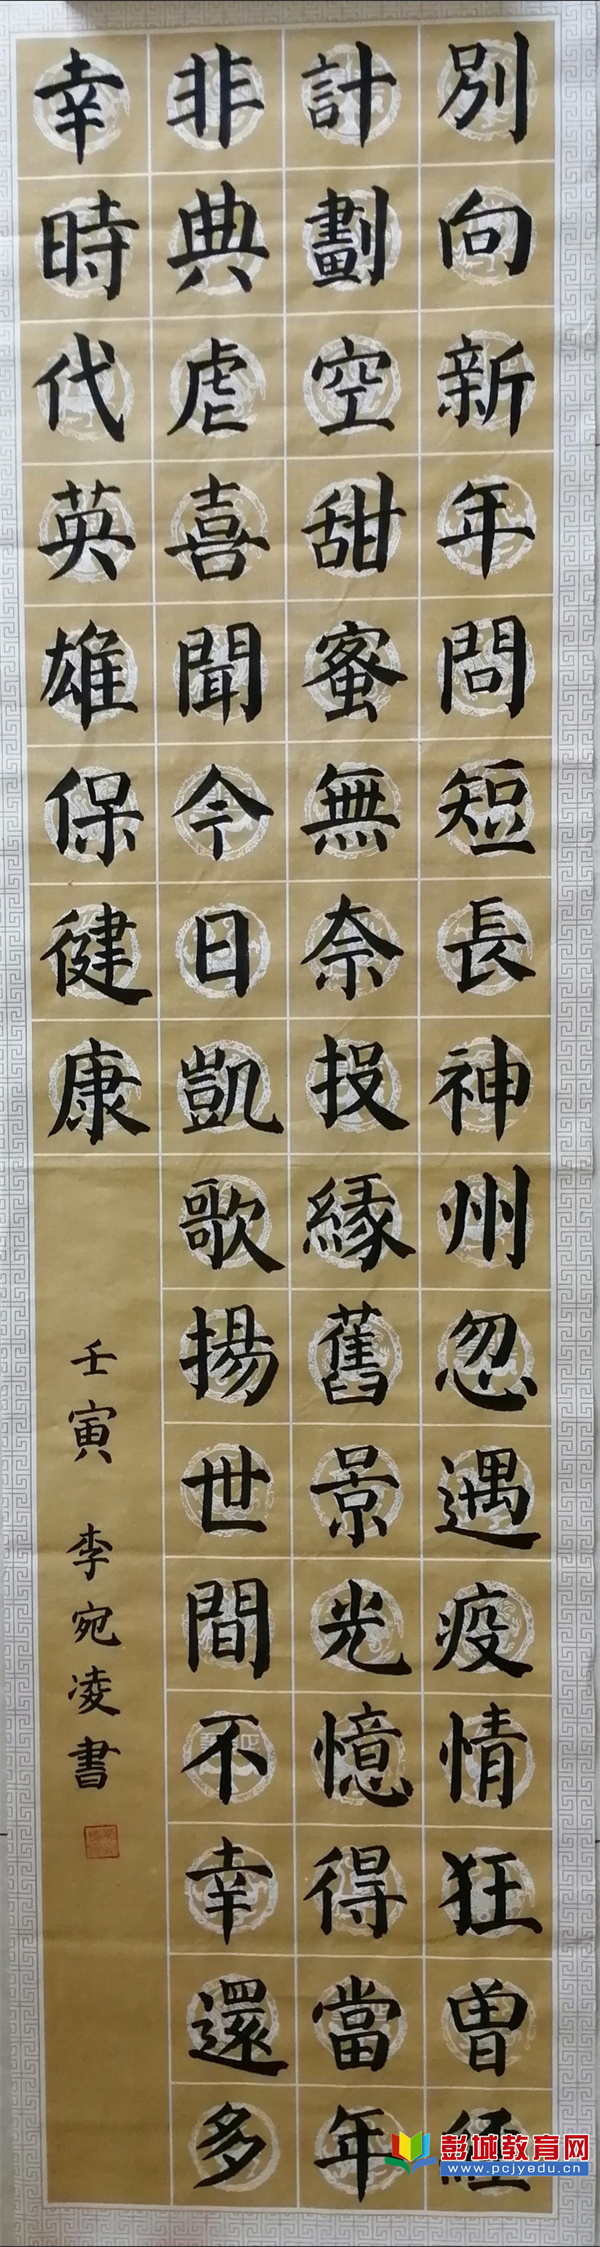 別向新年問短長神州忽遇疫情狂曾經
計劃空甜蜜無奈投緣舊景光憶得當年
非典虐喜聞今日凱歌揚世間不幸還多
幸時代英雄保健康
壬寅 李宛凌書
彭城教育网
www.pcjyedu.cn